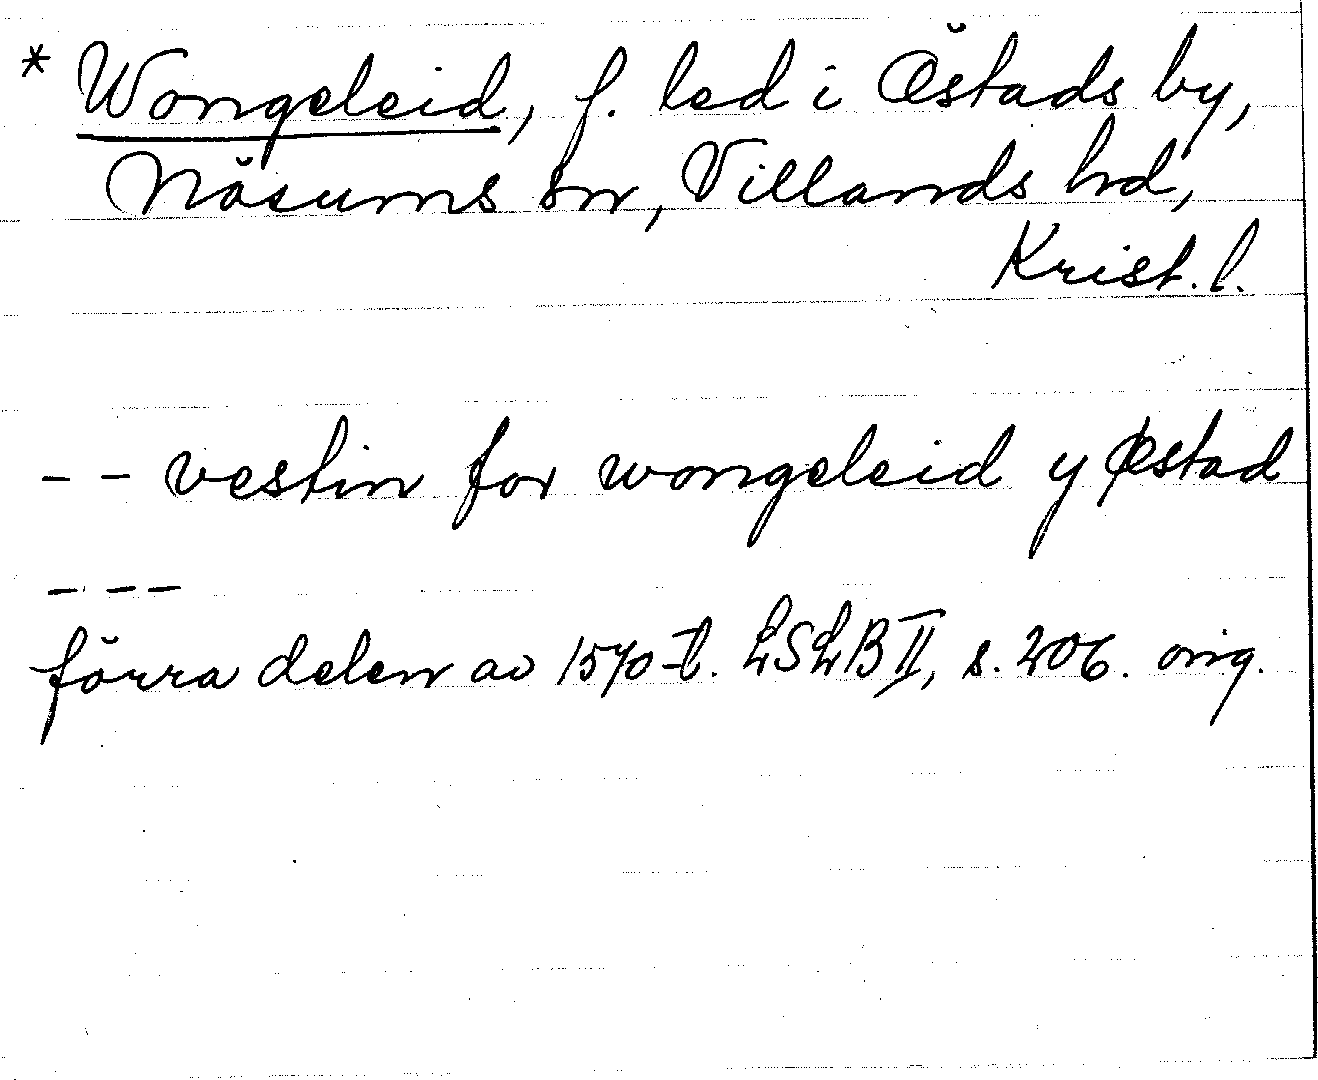 * Wongeleid, f. led i Östads by,
Näsums sn, Villands hd,
Krist. l.
- - vestin for wongeleid y Østad
- - -
förra delen av 1570-t. LSLB II, s. 206. orig.